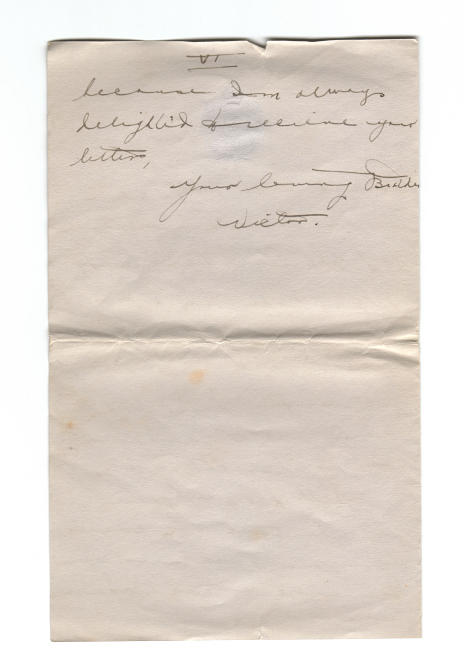 VI
because I'm always
delight'd to receive your
letters,
Your loving Brother
Victor.